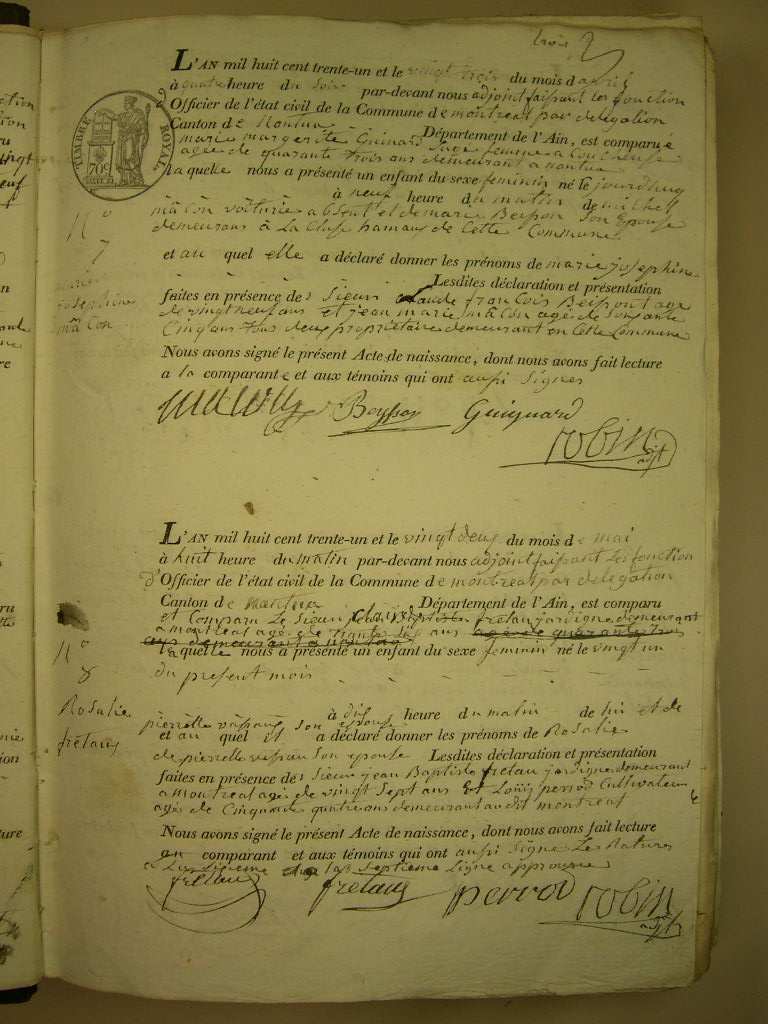 trois
L'AN mil huit cent trente-un et le vingt trois du mois d'avril
à quatre heure du soir par-devant nous adjoint faisant les fonction
d'Officier de l'état civil de la Commune de montreal par delegation
Canton de Nantua Département de l'Ain, est comparue
marie margerite Guinard femme accoucheuse
agee de quarante trois ans demeurant a nantua
la quelle nous a présenté un enfant du sexe feminin né le jourdhuy
à neuf heure du matin de michel
mâcon voiturie absent et de marie Beisson son Epouse
demeurans à La Cluse hamaus de Cette Commune
et au quel elle a déclaré donner les prénoms de marie josephine
Lesdites déclaration et présentation
faites en présence des Sieurs Claude francois Beissont age
de vingt neuf ans et jean marie mâcon agé de soixante
Cinq ans tous deux propriétaire demeurant en Cette Commune
Nous avons signé le présent Acte de naissance, dont nous avons fait lecture
a la comparante et aux témoins qui ont aussi Signes
Beysson Guignard
robin
adjt
TIMBRE ROYAL
N°
7
marie
josephine
mâcon
L'AN mil huit cent trente-un et le vingt deux du mois de mai
à huit heure du matin par-devant nous adjoint faisant Les fonction
d'Officier de l'état civil de la Commune de montreal par delegation
Canton de Nantua Département de l'Ain, est comparu
et Comparu Le Sieur fretau jardigne demeurant
a montreal agé de trante six ans agé de quarante trois
ans demeurant a nantua
la quelle nous a présenté un enfant du sexe feminin né le vingt un
du present mois
à dix heure du matin de lui et de
pierrette vefraus son epouse
et au quel il a déclaré donner les prénoms de Rosalie
de pierrette vefrau Son epouse Lesdites déclaration et présentation
faites en présence des Sieurs jean Baptiste fretau jardigne demeurant
a montreal agé de vingt sept ans Et Louis perrod Cultivateur
agé de Cinquante quatre ans demeurant au dit montreal
Nous avons signé le présent Acte de naissance, dont nous avons fait lecture
au comparant et aux témoins qui ont aussi Signe Les Ratures
a La sixieme septieme Ligne approuvé
fretau fretaus perrod robin
adjt
N°
8
Rosalie
fretaus